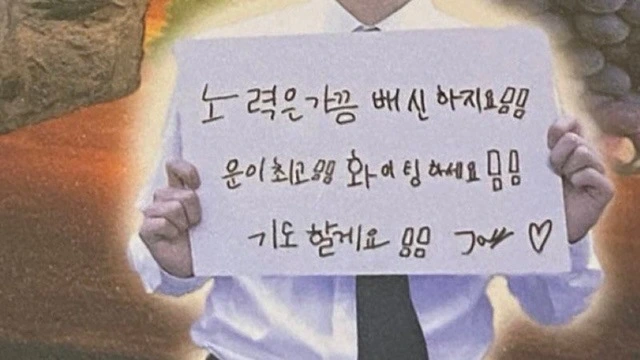 노력은가끔 배신하지요ㅁㅁ
운이최고ㅁㅁ 화이팅하세요ㅁㅁ
기도할게요 ㅁㅁ ♡